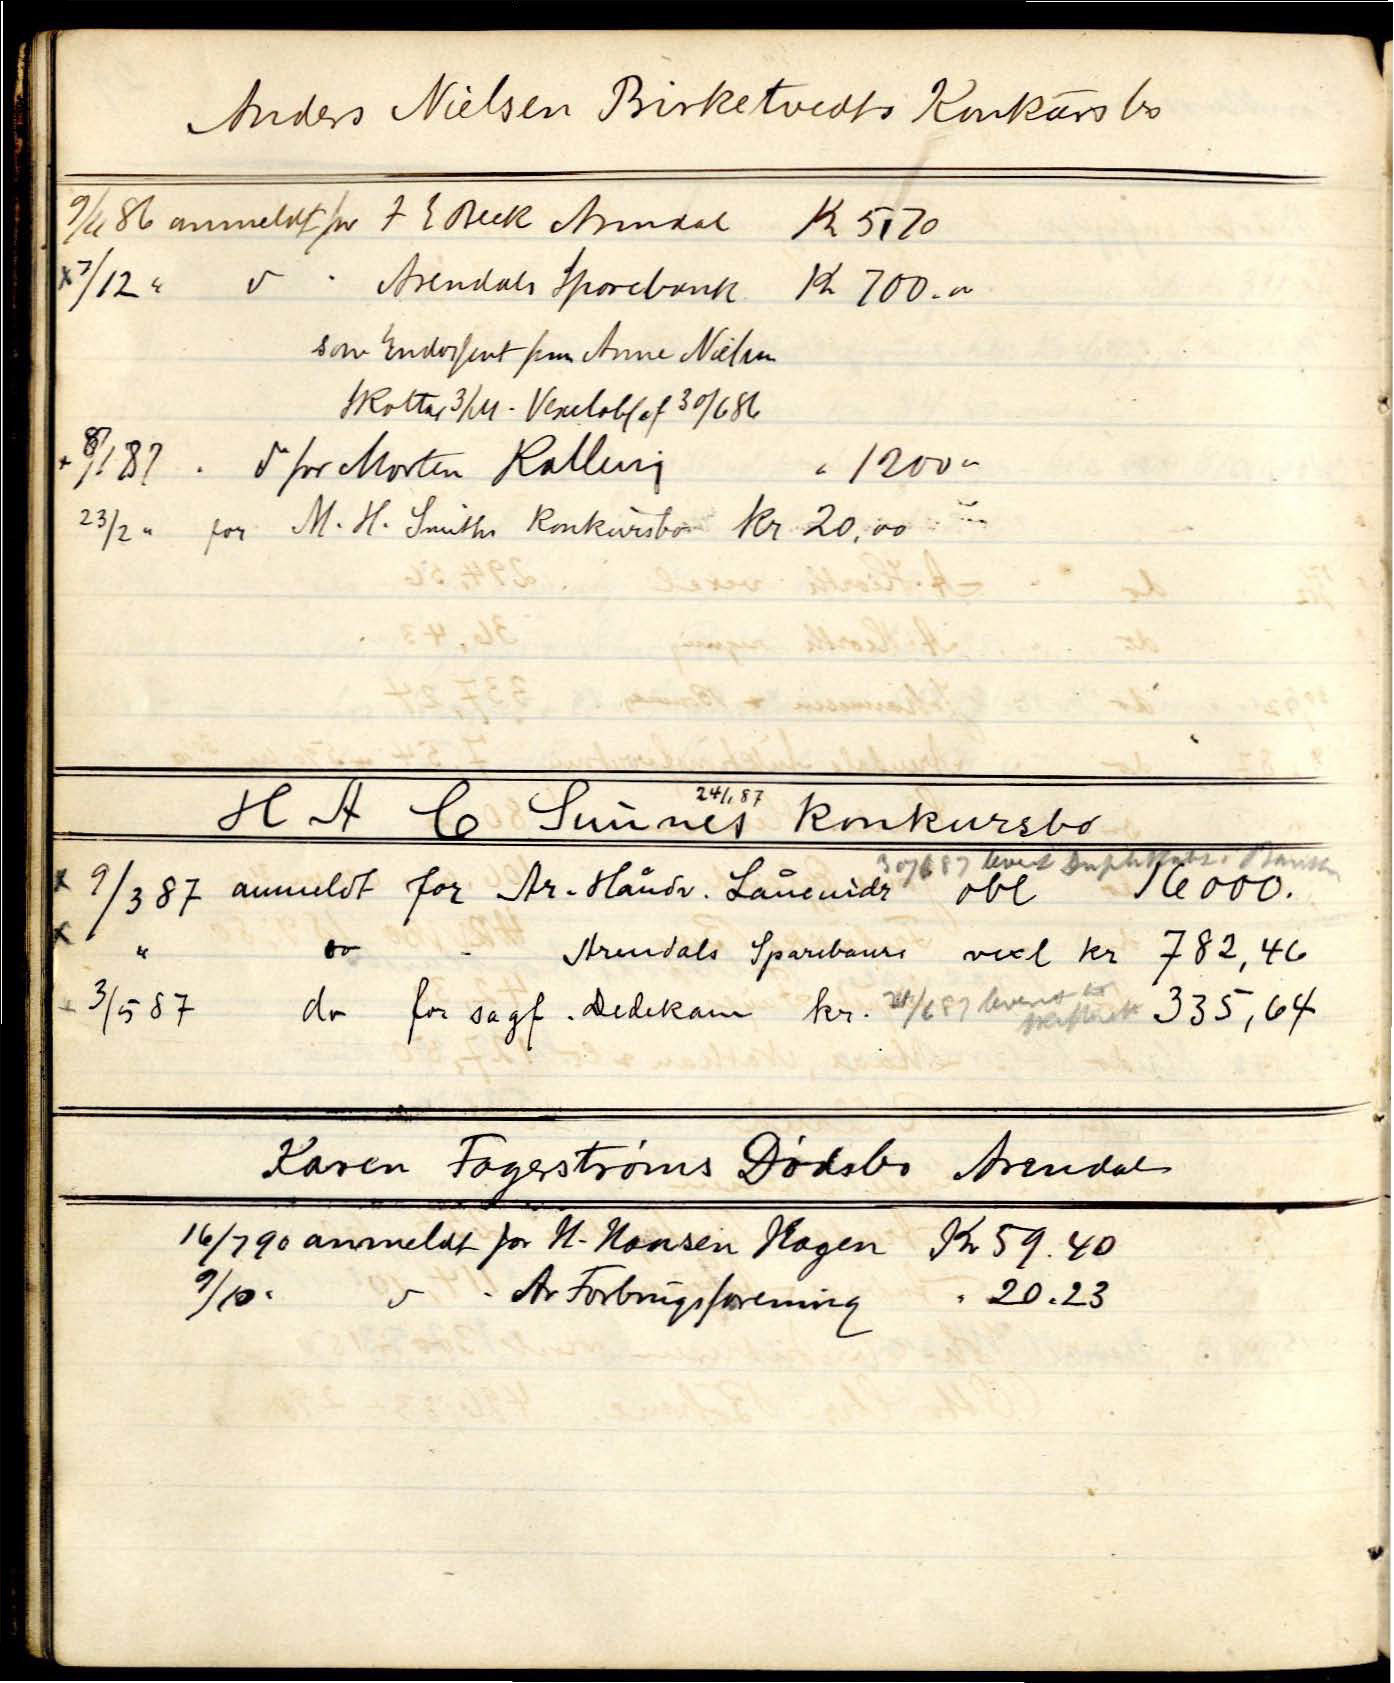 Anders Nielsen Birketvedts Konkürsbo
9/4 86 anmeldt for F E Beck Arendal Kr 5,70
x 7/12 " d " Arendals Sparebank Kr 700.00
som Endossent paa Anne Nielsen
3/m. Vexelobl af 30/6 86
+ 8/1 87 . d for Morten Kallevig " 1200 "
23/2 " for M. H. Smiths Konkürsbo kr 20,00
H A C Sünnes Konkursbo
24/1 87
30/6 87 levert
x 9/3 87 anmeldt for Ar. Håndv. Låneindr obl 16000.
x " do - Arendals Sparebank vexl kr 782,46
+ 3/5 87 do for sagf. Dedekam kr. 335,64
24/6 87 leveret
Karen Fagerstrøms Dødsbo Arendal
16/7 90 anmeldt for H. Hansen Hagen Kr 59.40
9/10 " d " Ar Forbrugsforening " 20.23